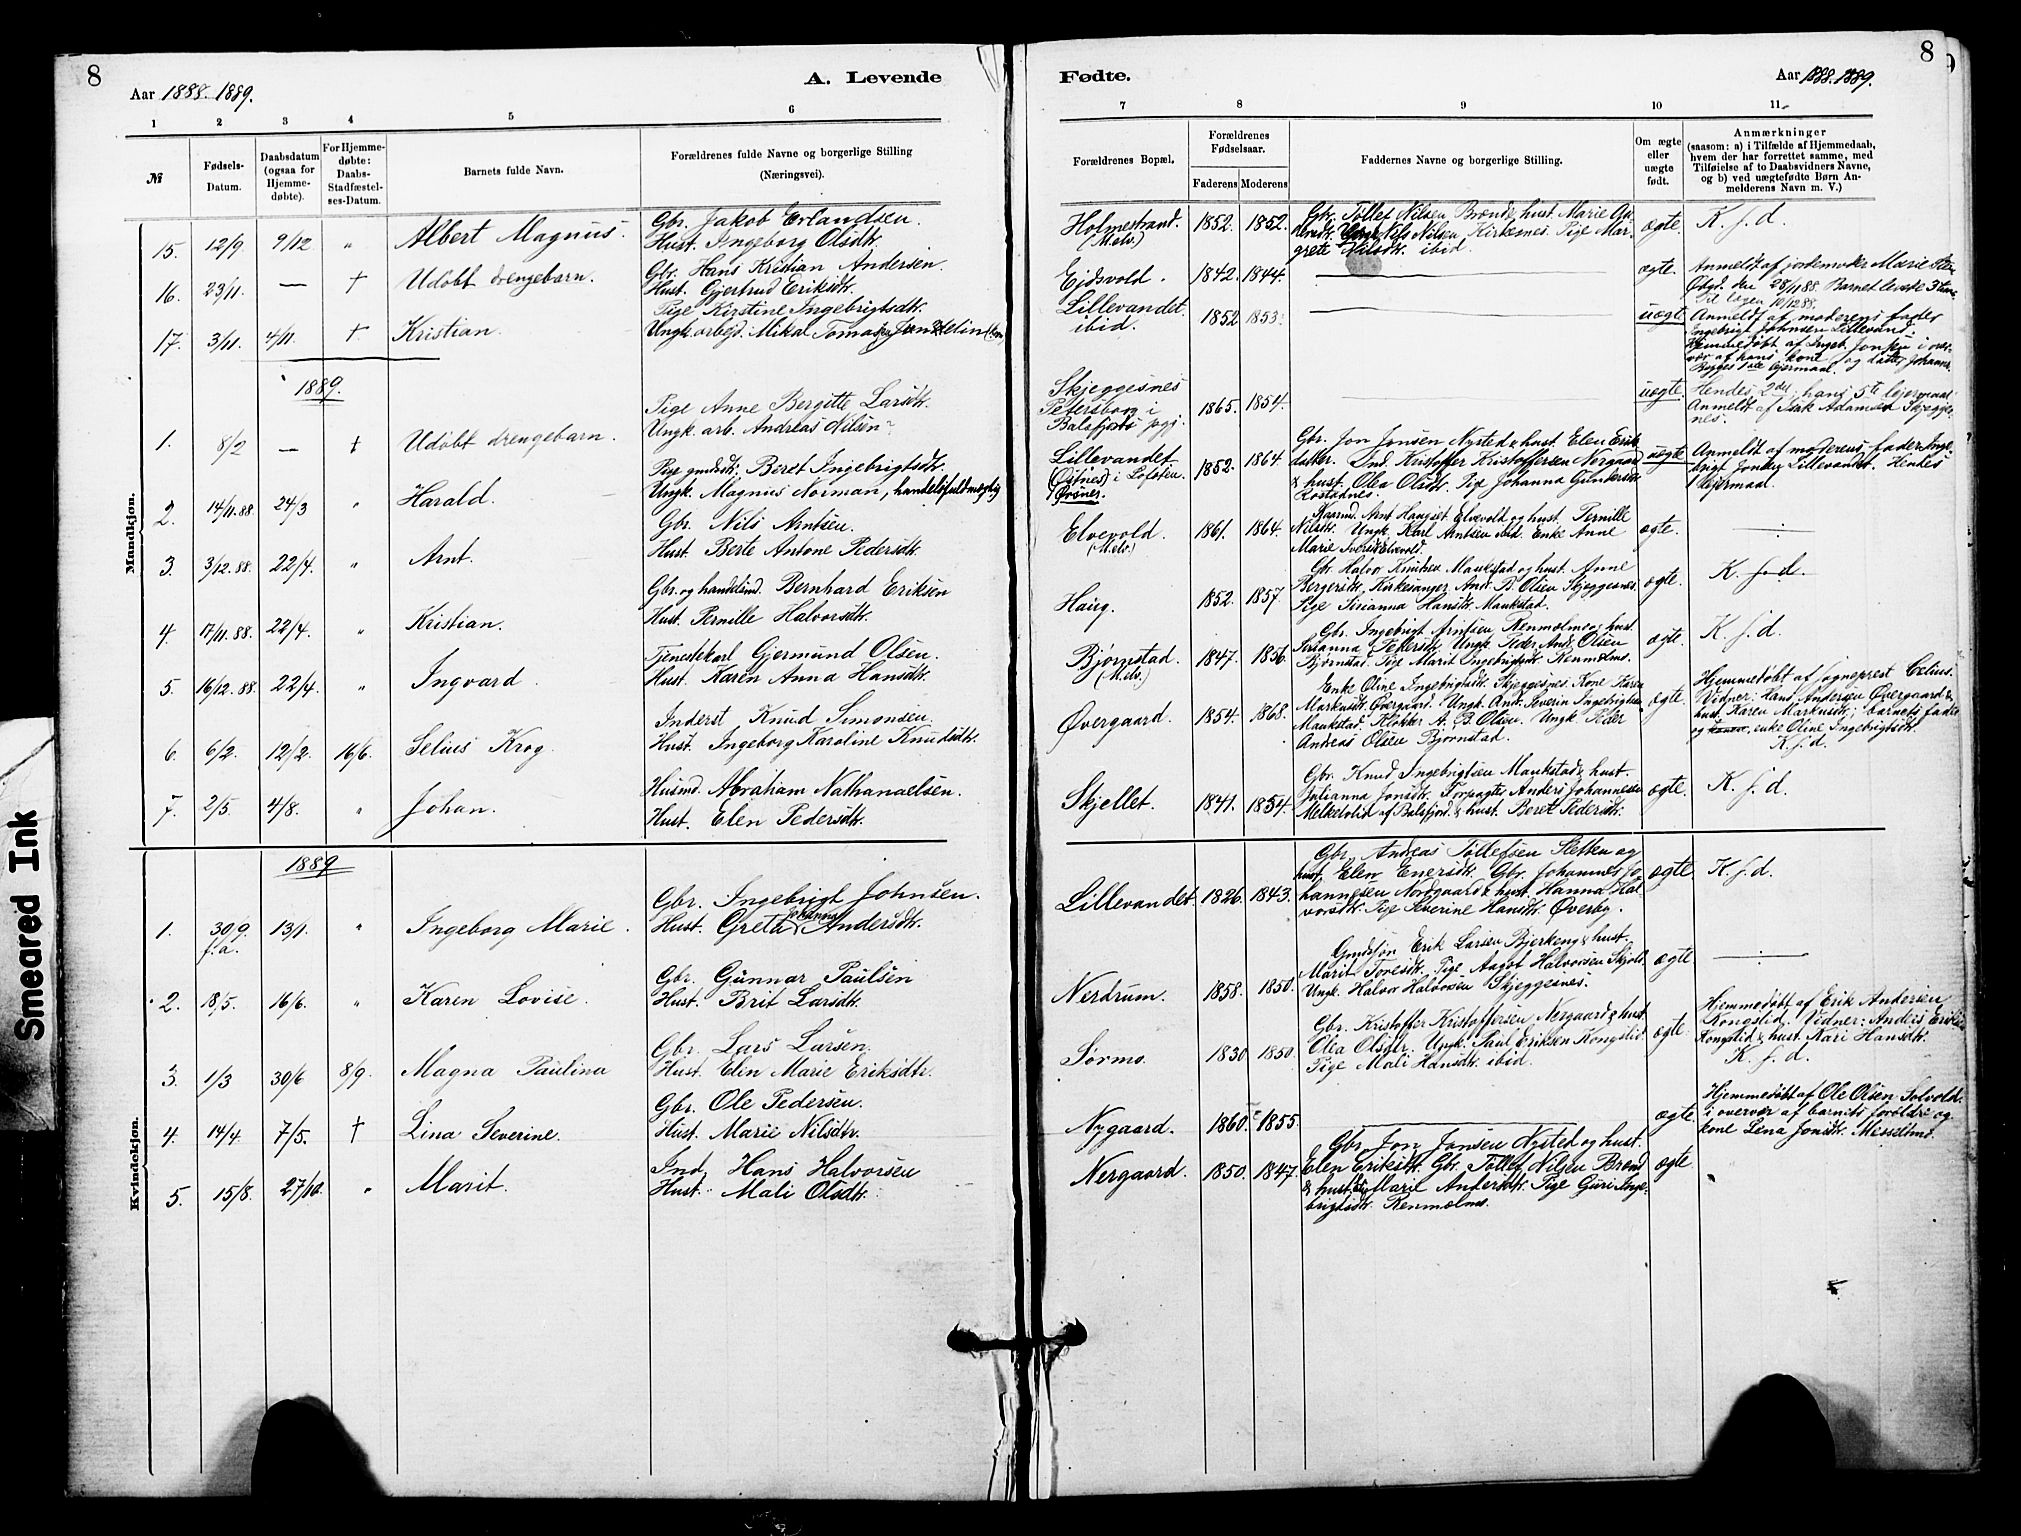 8
A. Levende
Aar 1888. 1889.
1
2
3
4
5
6
№
Fødsels-
Datum.
Daabsdatum
(ogsaa for
Hjemme-
døbte).
For Hjemme-
døbte:
Daabs-
Stadfæstel-
ses-Datum.
Barnets fulde Navn.
Forældrenes fulde Navne og borgerlige Stilling
(Næringsvei).
Mandkjøn.
Gbr. Jakob Erlandsen.
15. 12/9 9/12 " Albert Magnus. Hust. Ingeborg Olsdtr.
Gbr. Hans Kristian Andersen.
16. 23/11. — † Udøbt drengebarn. Hust. Gjertrud Eriksdtr.
Pige Kirstine Ingebrigtsdtr.
17. 3/11. 4/11. † Kristian. Ungk. arbejd. Mikal Tomas
1889.
Pige Anne Bergitte Larsdtr.
1. 8/2 — † Udøbt drengebarn. Ungk. arb. Andreas Nilsen
Pige Beret Ingebrigtsdtr.
2. 14/11.88. 24/3 " Harald. Ungk. Magnus Norman, handelsfuldmægtig
Gbr. Nils Arntsen.
3. 3/12.88. 22/4. " Arnt. Hust. Berte Antone Pedersdtr.
Gbr. og handelsmd. Bernhard Eriksen
4. 17/11.88. 22/4. " Kristian. Hust. Pernille Halvorsdtr.
Tjenestekarl Gjermund Olsen.
5. 16/12.88. 22/4. " Ingvard. Hust. Karen Anna Hansdtr.
Inderst Knud Simonsen.
6. 6/2. 12/2. 16/6. Selius Krog Hust. Ingeborg Karoline Knudsdtr.
Husmd. Abraham Nathanaelsen.
7. 2/5. 4/8. " Johan. Hust. Elen Pedersdtr.
Kvindekjøn.
1889
Gbr. Ingebrigt Johnsen.
1. 30/9. f.a. 13/1. " Ingeborg Marie. Hust. Greta Johanna Andersdtr.
Gbr. Gunnar Paulsen
2. 18/5. 16/6. " Karen Lovise. Hust. Brit Larsdtr.
Gbr. Lars Larsen.
3. 1/3 30/6 8/9. Magna Paulina Hust. Elen Marie Eriksdtr.
Gbr. Ole Pedersen.
4. 14/4. 7/5. † Lina Severine. Hust. Marie Nilsdtr.
Ind. Hans Halvorsen
5. 15/8. 27/10. " Marit. Hust. Mali Olsdtr.
8
Fødte.
Aar 1888. 1889.
7
8
9
10
11
Forældrenes Bopæl.
Forældrenes
Fødselsaar.
Faderens Moderens
Faddernes Navne og borgerlige Stilling.
Om ægte
eller
uægte
født.
Anmærkninger
(saasom: a) i Tilfælde af Hjemmedaab,
hvem der har forrettet samme, med
Tilføielse af to Daabsvidners Navne,
og b) ved uægtefødte Børn An-
melderens Navn m. V.)
Holmestrand. (Mels.) 1852. 1852. ægte. K. f. d.
Gbr. Tollef Nilsen Brønd & hust. Marie An-
Nils Nilsen Kirkesnes. Pige Mar-
grete Nilsdtr. ibid
Eidsvold. 1842. 1844. ægte. Anmeldt af jordemoder Marie
28/11 88. Barnet levede 3 timer
Lillevandet
ibid. 1852 1853 uægte Anmeldt af moderens fader
Ingebrigt Johnsen Lillevand.
Hjemmedøbt af Ingeb. Jonsen i over-
vær af hans kone og datter Johanna.
Begges 1ste lejermaal.
Skjeggesnes
Petersborg i
Balsfjord pgj. 1865. 1854. uægte. Hendes 2det, hans 5te lejermaal
Anmeldt af Isak Adamsen Skjegges-
nes.
Lillevandet
(Østnes) i Lofoten. 1852. 1864. uægte Anmeldt af moderens fader Inge-
brigt Jonsen Lillevandet. Hendes
1 lejermaal.
Gbr. Jon Jonsen Nysted & hust. Elen Eriks-
datter. Ind. Kristoffer Kristoffersen Nergaard
& hust. Olea Olsdtr. Pige Johanna Gundersdtr
Rostadnes.
Elvevold. (Mels.) 1861. 1864. ægte.
Elvevold og hust. Pernille
Nilsdtr. Ungk. Karl Arntsen ibid. Enke Anne
Marie Elvevold.
Haug. 1852. 1857. ægte. K. f. d.
Gbr. Halvor Knudsen Maukstad og hust. Anne
Bergersdtr. Kirkesanger And. B. Olsen Skjeggesnes.
Pige Sirianna Hansdtr. Maukstad.
Bjørnstad. (Mels.) 1847. 1856. ægte. K. f. d.
Gbr. Ingebrigt Arntsen Renmælmo og hust.
Sirianna Pedersdtr. Ungk. Peder And. Olsen
Bjørnstad. Pige Marit Ingebrigtsdtr. Renmælmo.
Øvergaard. 1854. 1868. ægte.
Enke Oline Ingebrigtsdtr. Skjeggesnes. Kone Karen
Markusdtr. Øvergaard. Ungk. And. Severin Ingebrigtsen
Maukstad. Klokker A. B. Olsen. Ungk. Peder
Andreas Olsen Bjørnstad.
Hjemmedøbt af sogneprest Celius.
Vidner: Hans Andersen Øvergaard &
hust. Karen Markusdtr.; barnets fader
og enke Oline Ingebrigtsdtr.
K. f. d.
Skjellet. 1841. 1854. ægte. K. f. d.
Gbr. Knud Ingebrigtsen Maukstad & hust.
Julianna Jonsdtr. Forpagter Anders Johannesen
Melkelvlid af Balsfjord. & hust. Beret Pedersdtr.
Lillevandet. 1826. 1843. ægte K. f. d.
Gbr. Andreas Tollefsen Sletten og
hust. Elen Enersdtr. Gbr. Johannes Jo-
hannesen Nordgaard & hust. Hanna Hal-
vorsdtr. Pige Severine Hansdtr. Øverby.
Nerdrum. 1858. 1850. ægte
Gaardsøn Erik Larsen Bjerkeng & hust.
Marit Toresdtr. Pige Aagot Halvorsen Skjold.
Ungk. Halvor Halvorsen Skjeggesnes.
Sørmo. 1830 1850. ægte
Gbr. Kristoffer Kristoffersen Nergaard & hust
Olea Olsdtr. Ungk. Paul Eriksen Kongslid.
Pige Mali Hansdtr. ibid.
Hjemmedøbt af Erik Andersen
Kongslid. Vidner: Anders Eriksen
Kongslid & hust. Kari Hansdtr.
K. f. d.
Nygaard. 1860. 1855. ægte.
Hjemmedøbt af Ole Olsen Solvold
i overvær af barnets forældre og
kone Lena Jonsdtr. Messelmo.
Nergaard. 1850. 1847. ægte
Gbr. Jon Jonsen Nysted og hust.
Elen Eriksdtr. Gbr. Tollef Nilsen Brønd
& hust. Marie Andersdtr. Pige Guri Inge-
brigtsdtr. Renmælmo.
Smeared Ink